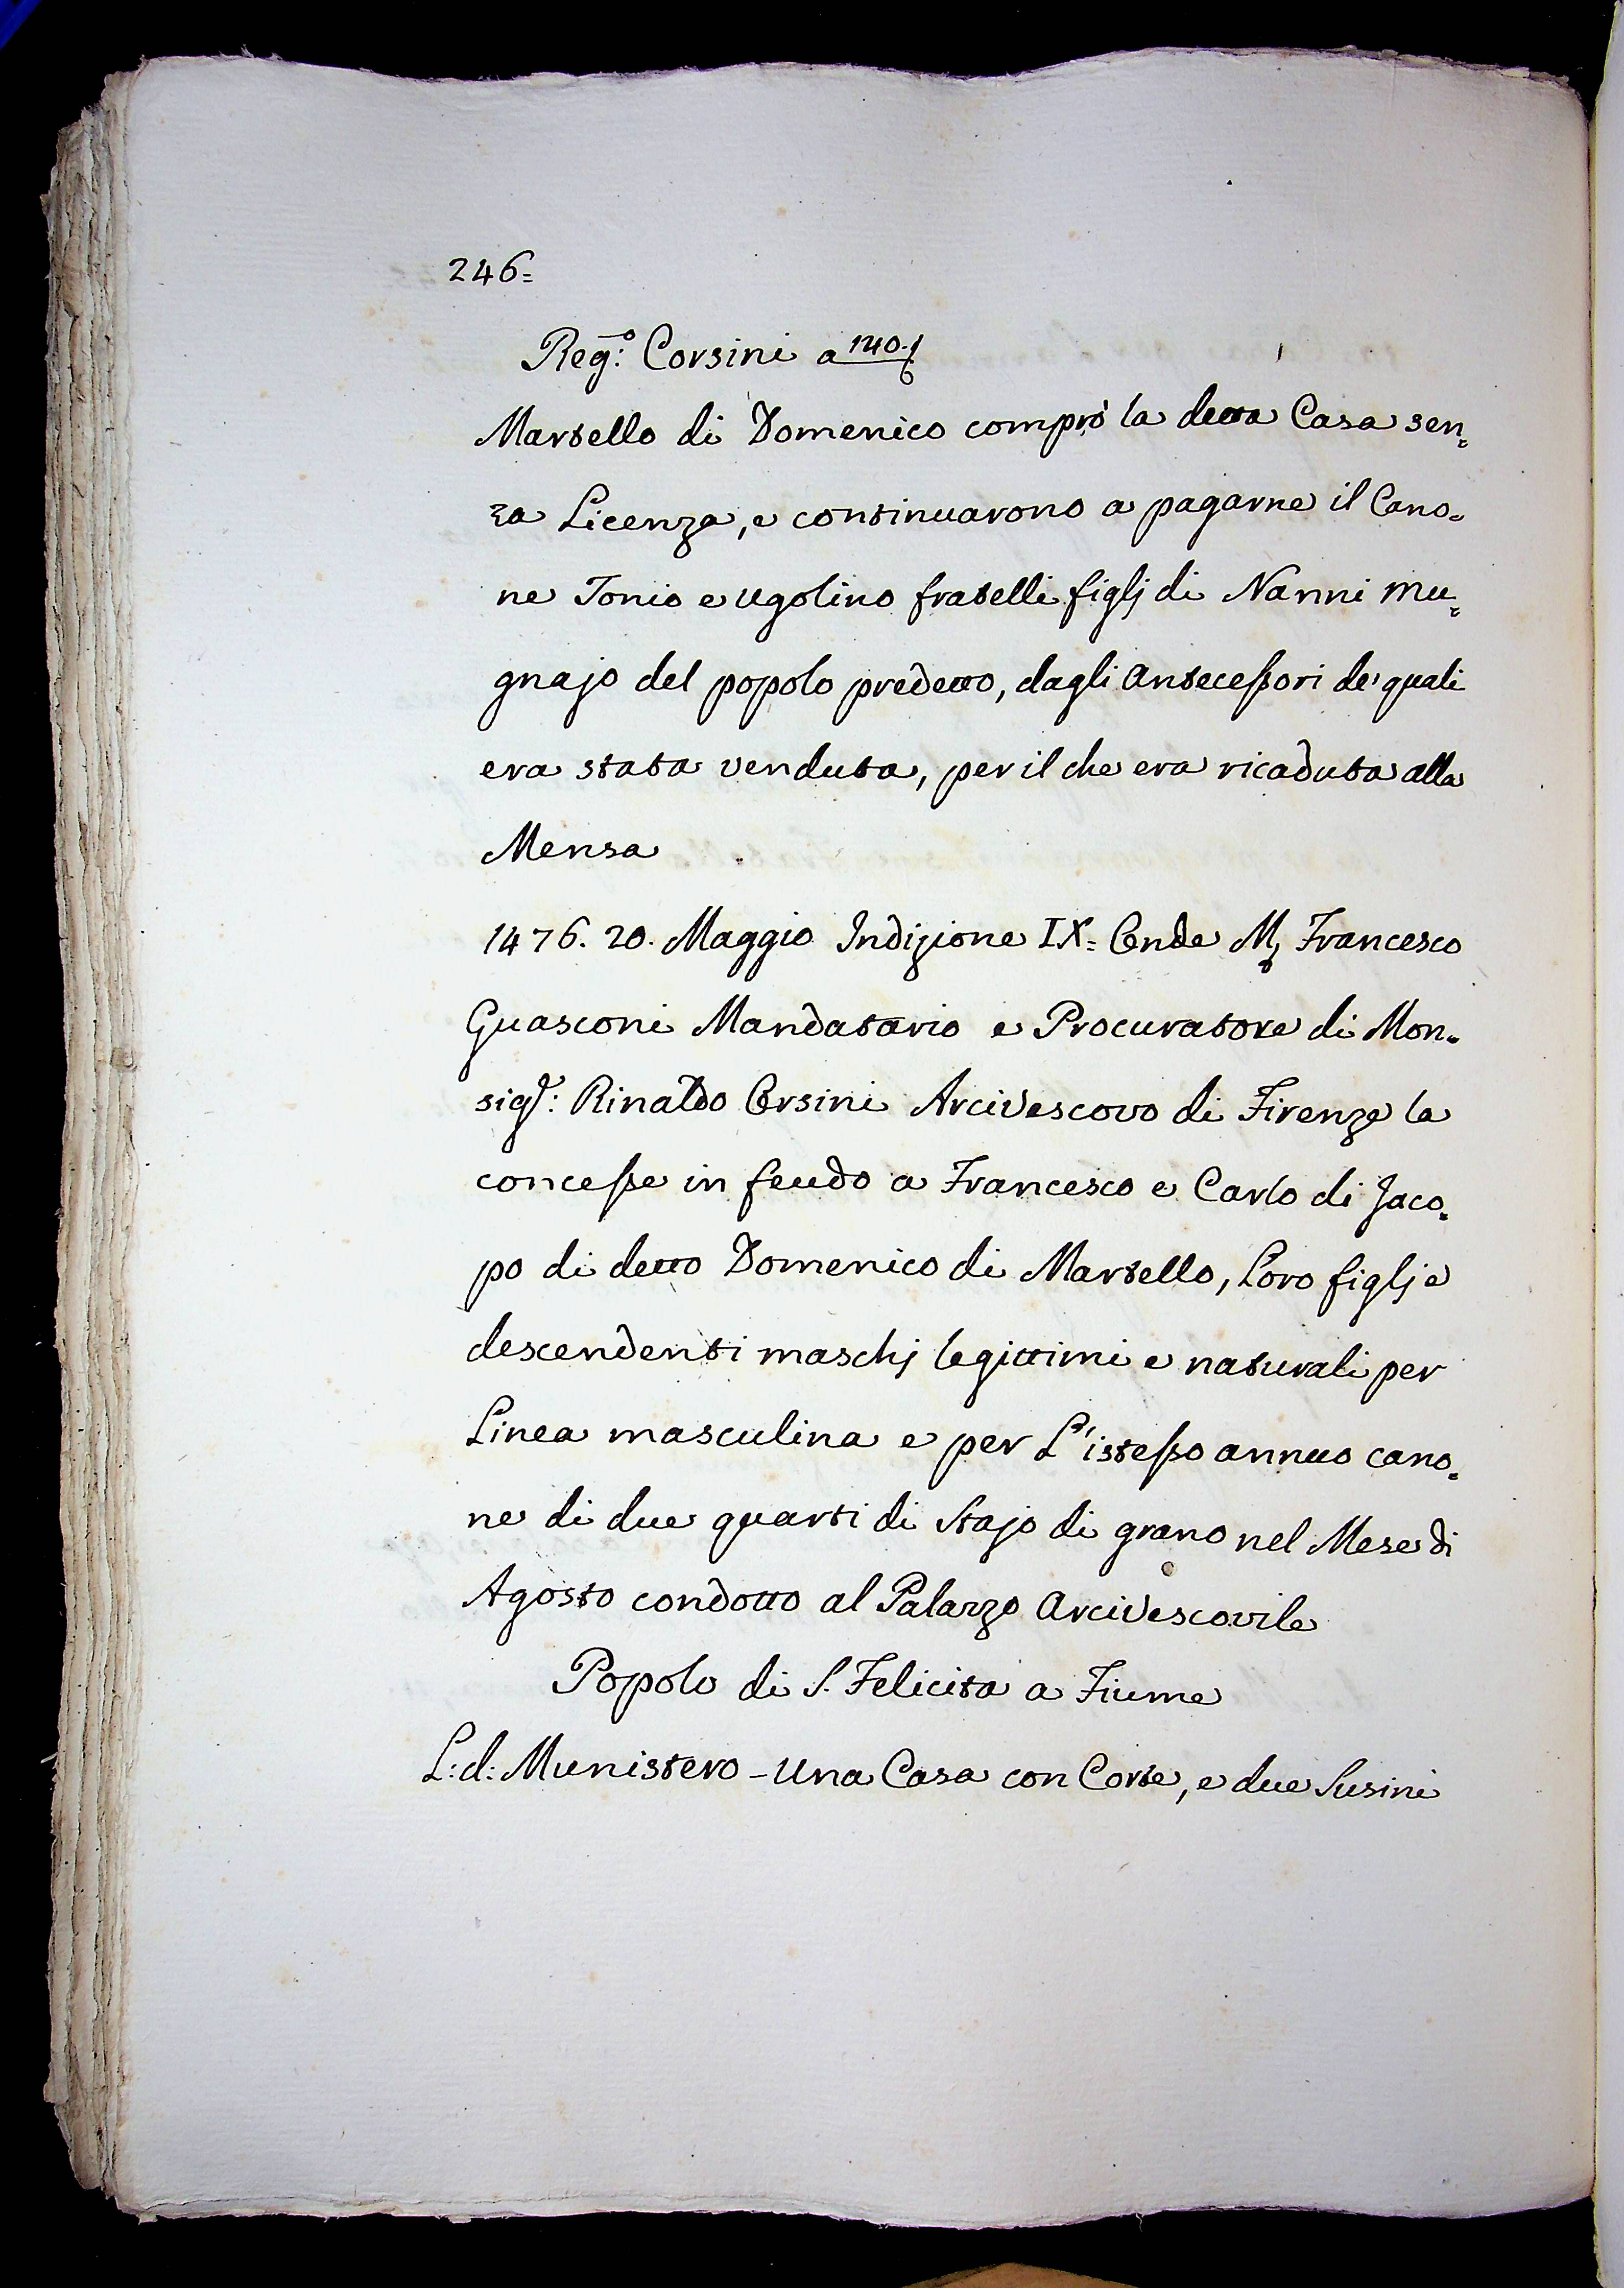 246=
Reg:o Corsini a 140.
Martello di Domenico comprò la detta Casa sen=
za Licenza, e continuarono a pagarne il Cano=
ne Tonio e Ugolino fratelli figlj di Nanni mu=
gnajo del popolo predetto, dagli Antecessori de' quali
era stata venduta, per il che era ricaduta alla
Mensa
1476. 20. Maggio Indizione IX= Onde M. Francesco
Guasconi Mandatario e Procuratore di Mon=
sigr: Rinaldo Orsini Arcivescovo di Firenze la
concesse in feudo a Francesco e Carlo di Jaco=
po di detto Domenico di Martello, Loro figlj e
descendenti maschj legittimi e naturali per
Linea masculina e per L'istesso annuo cano=
ne di due quarti di Stajo di grano nel Mese di
Agosto condotto al Palazzo Arcivescovile
Popolo di S. Felicita a Fiume
L: d: Munistero - Una Casa con Corte, e due Susini